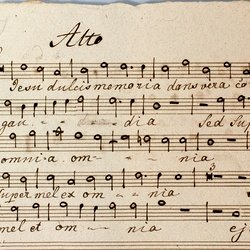 Alto
Jesu dulcis memoria dans vera co
gau - - dia Sed Sup
omnia om - - nia
super mel et om - - nia
mel et om - - nia ej